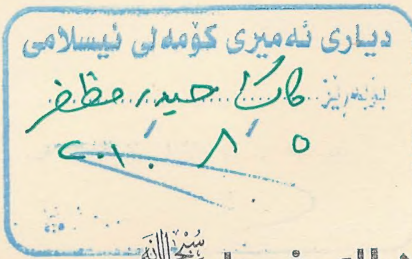 دیاری ئەمیری کۆمەڵی ئیسلامی
بۆ بەڕێز: کاک حیدر مظفر
٢٠١٠ / ٨ / ٥